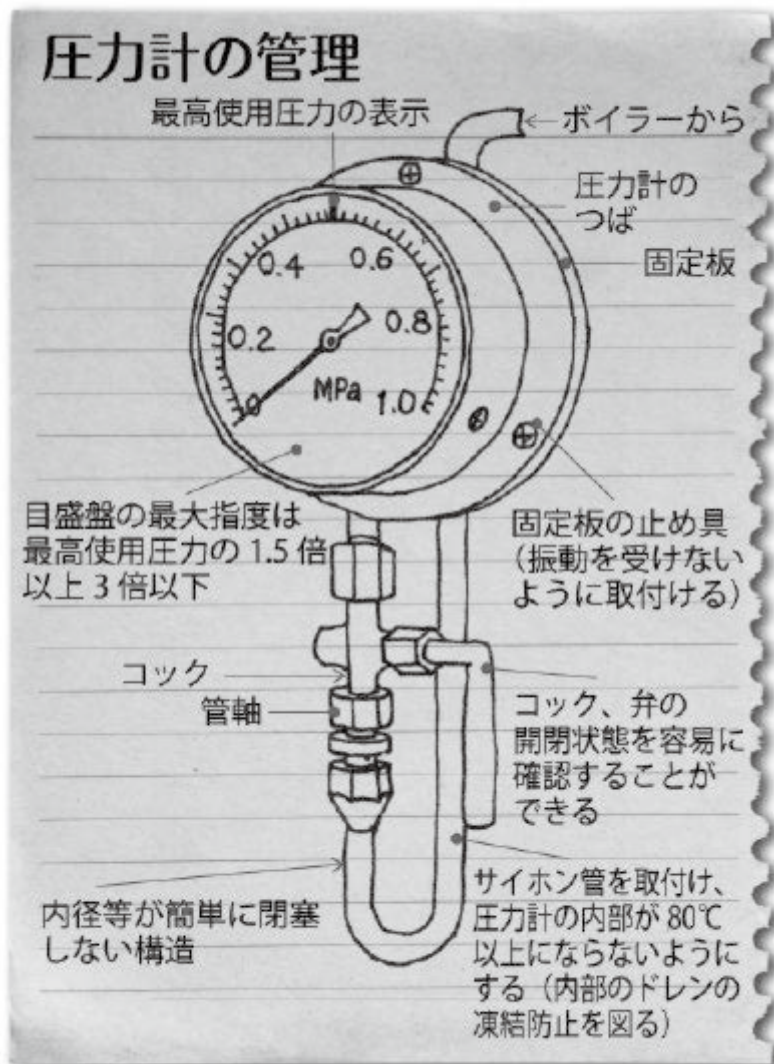 圧力計の管理
最高使用圧力の表示
ボイラーから
圧力計の
つば
固定板
0.4
0.6
0.2
0.8
0
MPa
1.0
目盛盤の最大指度は
最高使用圧力の 1.5 倍
以上 3 倍以下
固定板の止め具
(振動を受けない
ように取付ける)
コック
管軸
コック、弁の
開閉状態を容易に
確認することが
できる
内径等が簡単に閉塞
しない構造
サイホン管を取付け、
圧力計の内部が 80℃
以上にならないように
する(内部のドレンの
凍結防止を図る)